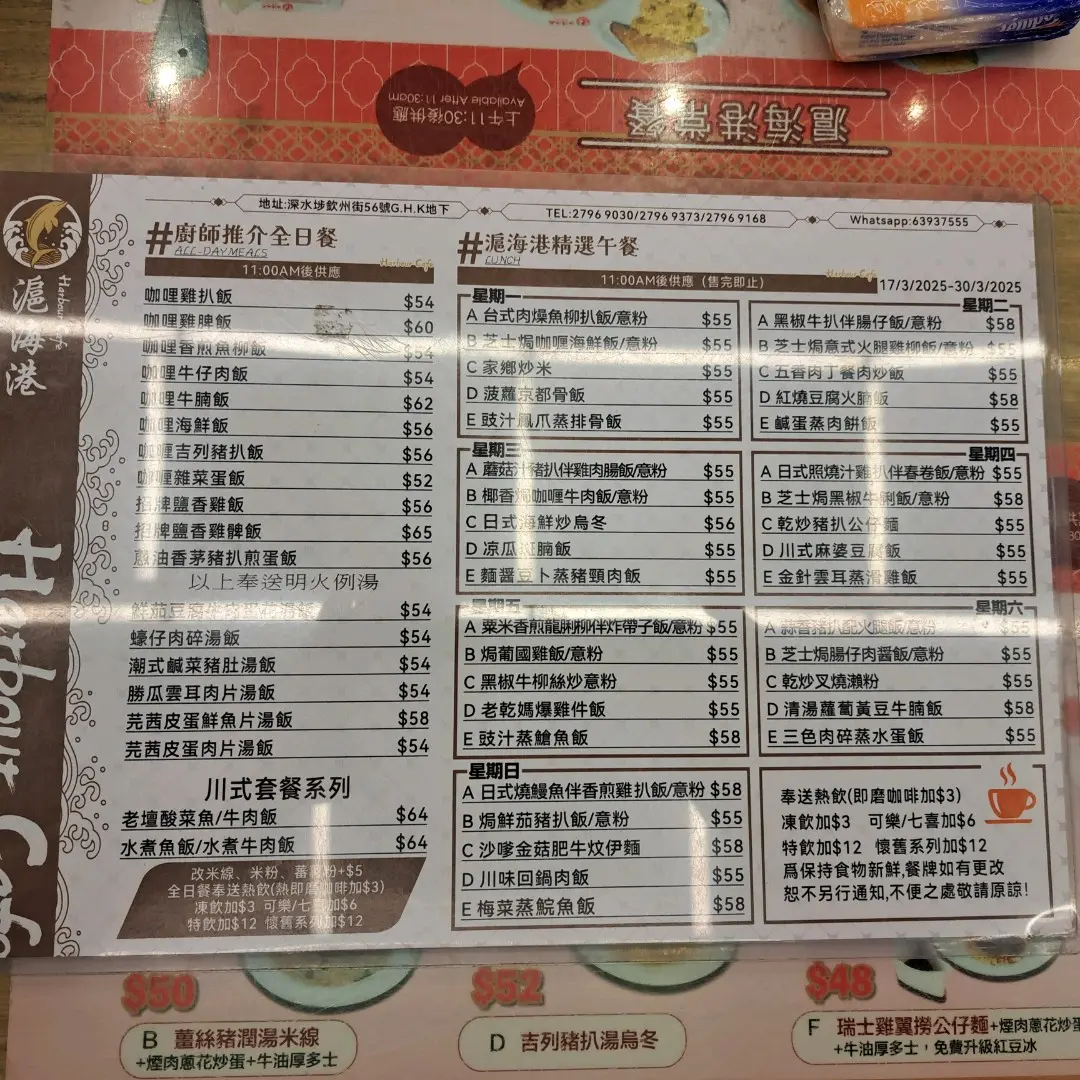 上午11:30後供應
Available After 11:30am
滬海港常餐
滬海港
Harbour Cafe
地址:深水埗欽州街56號G.H.K地下
TEL:2796 9030/2796 9373/2796 9168
Whatsapp:63937555
#廚師推介全日餐
ALL-DAY MEALS
Harbour Cafe
11:00AM後供應
咖哩雞扒飯 $54
咖哩雞脾飯 $60
咖哩香煎魚柳飯 $54
咖哩牛仔肉飯 $54
咖哩牛腩飯 $62
咖哩海鮮飯 $56
咖喱吉列豬扒飯 $56
咖喱雜菜蛋飯 $52
招牌鹽香雞飯 $56
招牌鹽香雞髀飯 $65
蔥油香茅豬扒煎蛋飯 $56
以上奉送明火例湯
鮮茄豆腐 $54
蠔仔肉碎湯飯 $54
潮式鹹菜豬肚湯飯 $54
勝瓜雲耳肉片湯飯 $54
芫茜皮蛋鮮魚片湯飯 $58
芫茜皮蛋肉片湯飯 $54
川式套餐系列
老壇酸菜魚/牛肉飯 $64
水煮魚飯/水煮牛肉飯 $64
改米線、米粉、蕃薯粉+$5
全日餐奉送熱飲(熱即磨咖啡加$3)
凍飲加$3 可樂/七喜加$6
特飲加$12 懷舊系列加$12
#滬海港精選午餐
LUNCH
Harbour Cafe
11:00AM後供應（售完即止）
17/3/2025-30/3/2025
星期一
A 台式肉燥魚柳扒飯/意粉 $55
B 芝士焗咖喱海鮮飯/意粉 $55
C 家鄉炒米 $55
D 菠蘿京都骨飯 $55
E 豉汁鳳爪蒸排骨飯 $55
星期二
A 黑椒牛扒伴腸仔飯/意粉 $58
B 芝士焗意式火腿雞柳飯/意粉 $55
C 五香肉丁餐肉炒飯 $55
D 紅燒豆腐火腩飯 $58
E 鹹蛋蒸肉餅飯 $55
星期三
A 蘑菇汁豬扒伴雞肉腸飯/意粉 $55
B 椰香焗咖喱牛肉飯/意粉 $55
C 日式海鮮炒烏冬 $56
D 凉瓜斑腩飯 $55
E 麵醬豆卜蒸豬頸肉飯 $55
星期四
A 日式照燒汁雞扒伴春卷飯/意粉 $55
B 芝士焗黑椒牛脷飯/意粉 $58
C 乾炒豬扒公仔麵 $55
D 川式麻婆豆腐飯 $55
E 金針雲耳蒸滑雞飯 $55
星期五
A 粟米香煎龍脷柳伴炸帶子飯/意粉 $55
B 焗葡國雞飯/意粉 $55
C 黑椒牛柳絲炒意粉 $55
D 老乾媽爆雞件飯 $55
E 豉汁蒸鯧魚飯 $58
星期六
A 蒜香豬扒配火腿飯/意粉 $55
B 芝士焗腸仔肉醬飯/意粉 $55
C 乾炒叉燒瀨粉 $55
D 清湯蘿蔔黃豆牛腩飯 $58
E 三色肉碎蒸水蛋飯 $55
星期日
A 日式燒鰻魚伴香煎雞扒飯/意粉 $58
B 焗鮮茄豬扒飯/意粉 $55
C 沙嗲金菇肥牛炆伊麵 $58
D 川味回鍋肉飯 $55
E 梅菜蒸鯇魚飯 $58
奉送熱飲(即磨咖啡加$3)
凍飲加$3 可樂/七喜加$6
特飲加$12 懷舊系列加$12
爲保持食物新鮮,餐牌如有更改
恕不另行通知,不便之處敬請原諒!
Harbour Cafe
$50
B 薑絲豬潤湯米線
+煙肉蔥花炒蛋+牛油厚多士
$52
D 吉列豬扒湯烏冬
$48
F 瑞士雞翼撈公仔麵+煙肉蔥花炒蛋
+牛油厚多士，免費升級紅豆冰